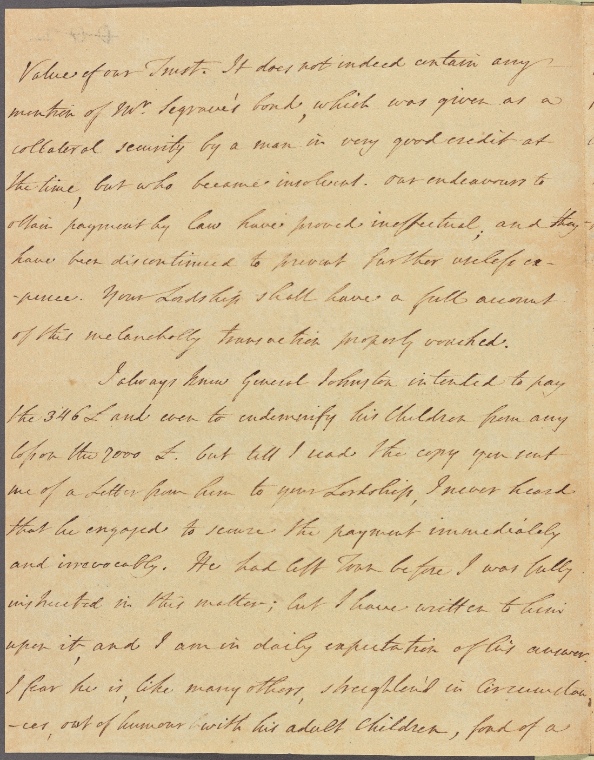 Value of our Trust. It does not indeed contain any
mention of Mr. Segrave's bond, which was given as a
collateral security by a man in very good credit at
the time, but who became insolvent. our endeavours to
obtain payment by law have proved ineffectual, and they
have been discontinued to prevent further useless ex-
-pence. Your Lordship shall have a full account
of this melancholly transaction properly vouched.
I always knew General Johnston intended to pay
the 346 £ and even to indemnify his Children from any
loss on the 7000 £. but till I read the copy you sent
me of a Letter from him to your Lordship, I never heard
that he engaged to secure the payment immediately
and irrevocably. He had left Town before I was fully
instructed in this matter; but I have written to him
upon it, and I am in daily expectation of his answer.
I fear he is, like many others, streighten'd in Circumstan
-ces, out of humour with his adult Children, fond of a